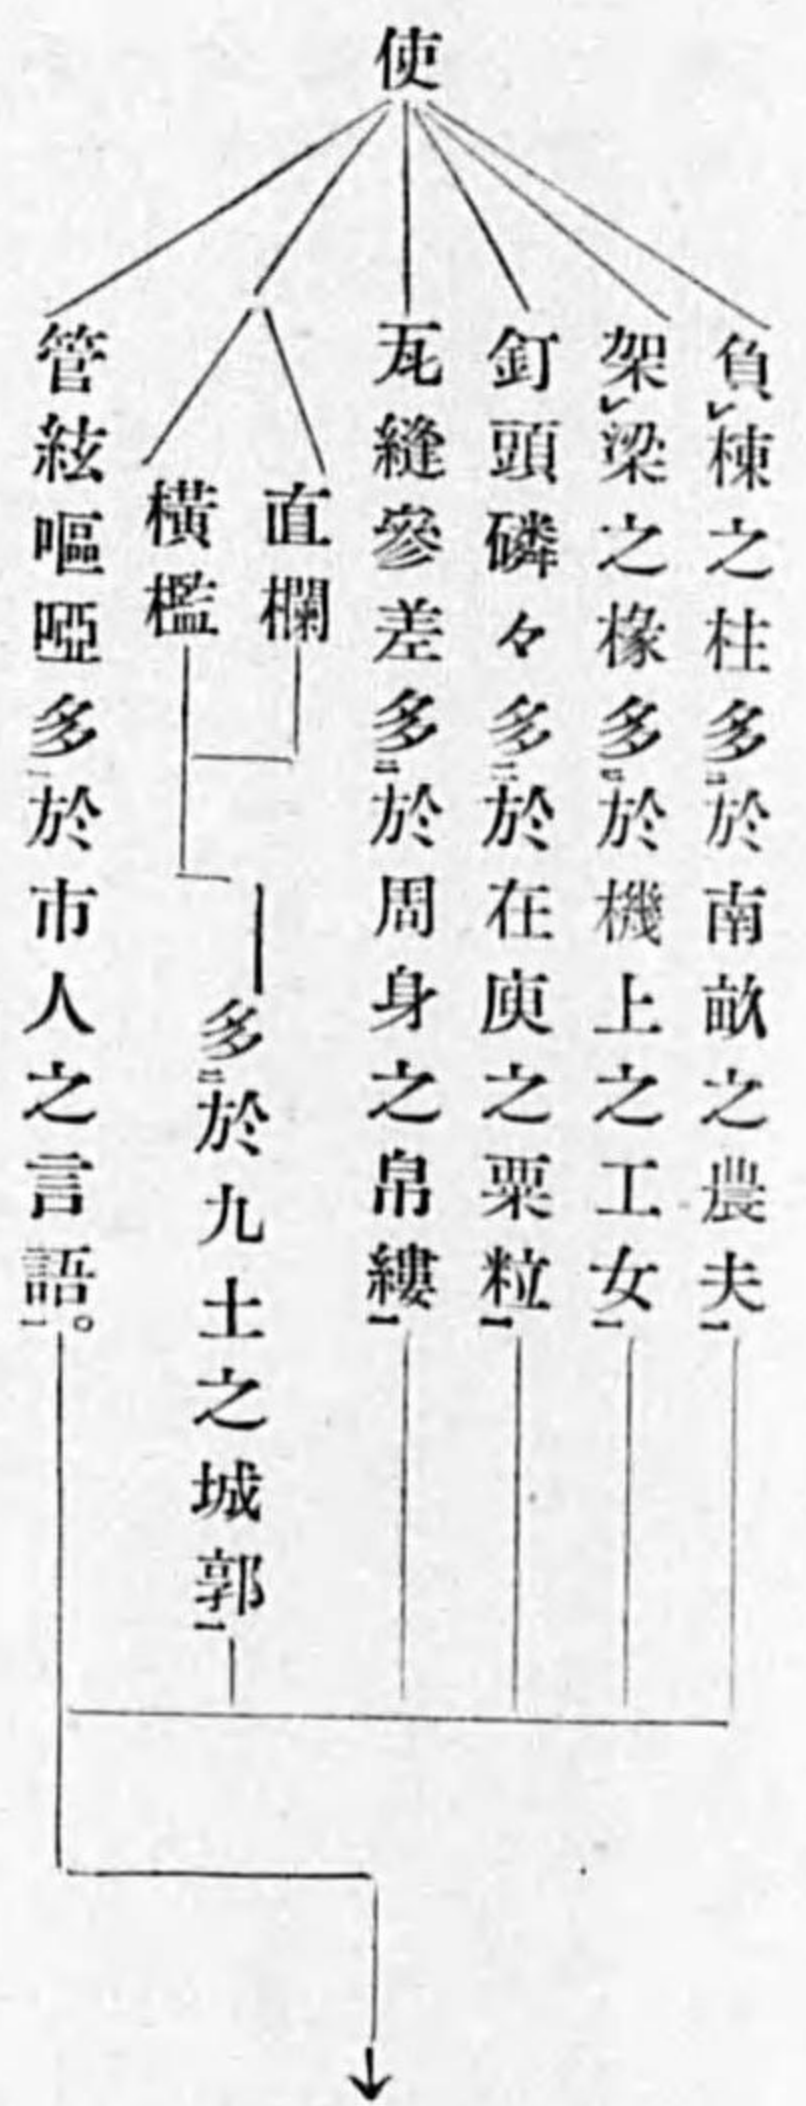 使
負㆑棟之柱多㆓於南畝之農夫㆒
架㆑梁之椽多㆓於機上之工女㆒
釘頭磷々多㆓於在庾之粟粒㆒
瓦縫參差多㆓於周身之帛縷㆒
直欄
橫檻
多㆓於九土之城郭㆒
管絃嘔啞多㆓於市人之言語㆒。